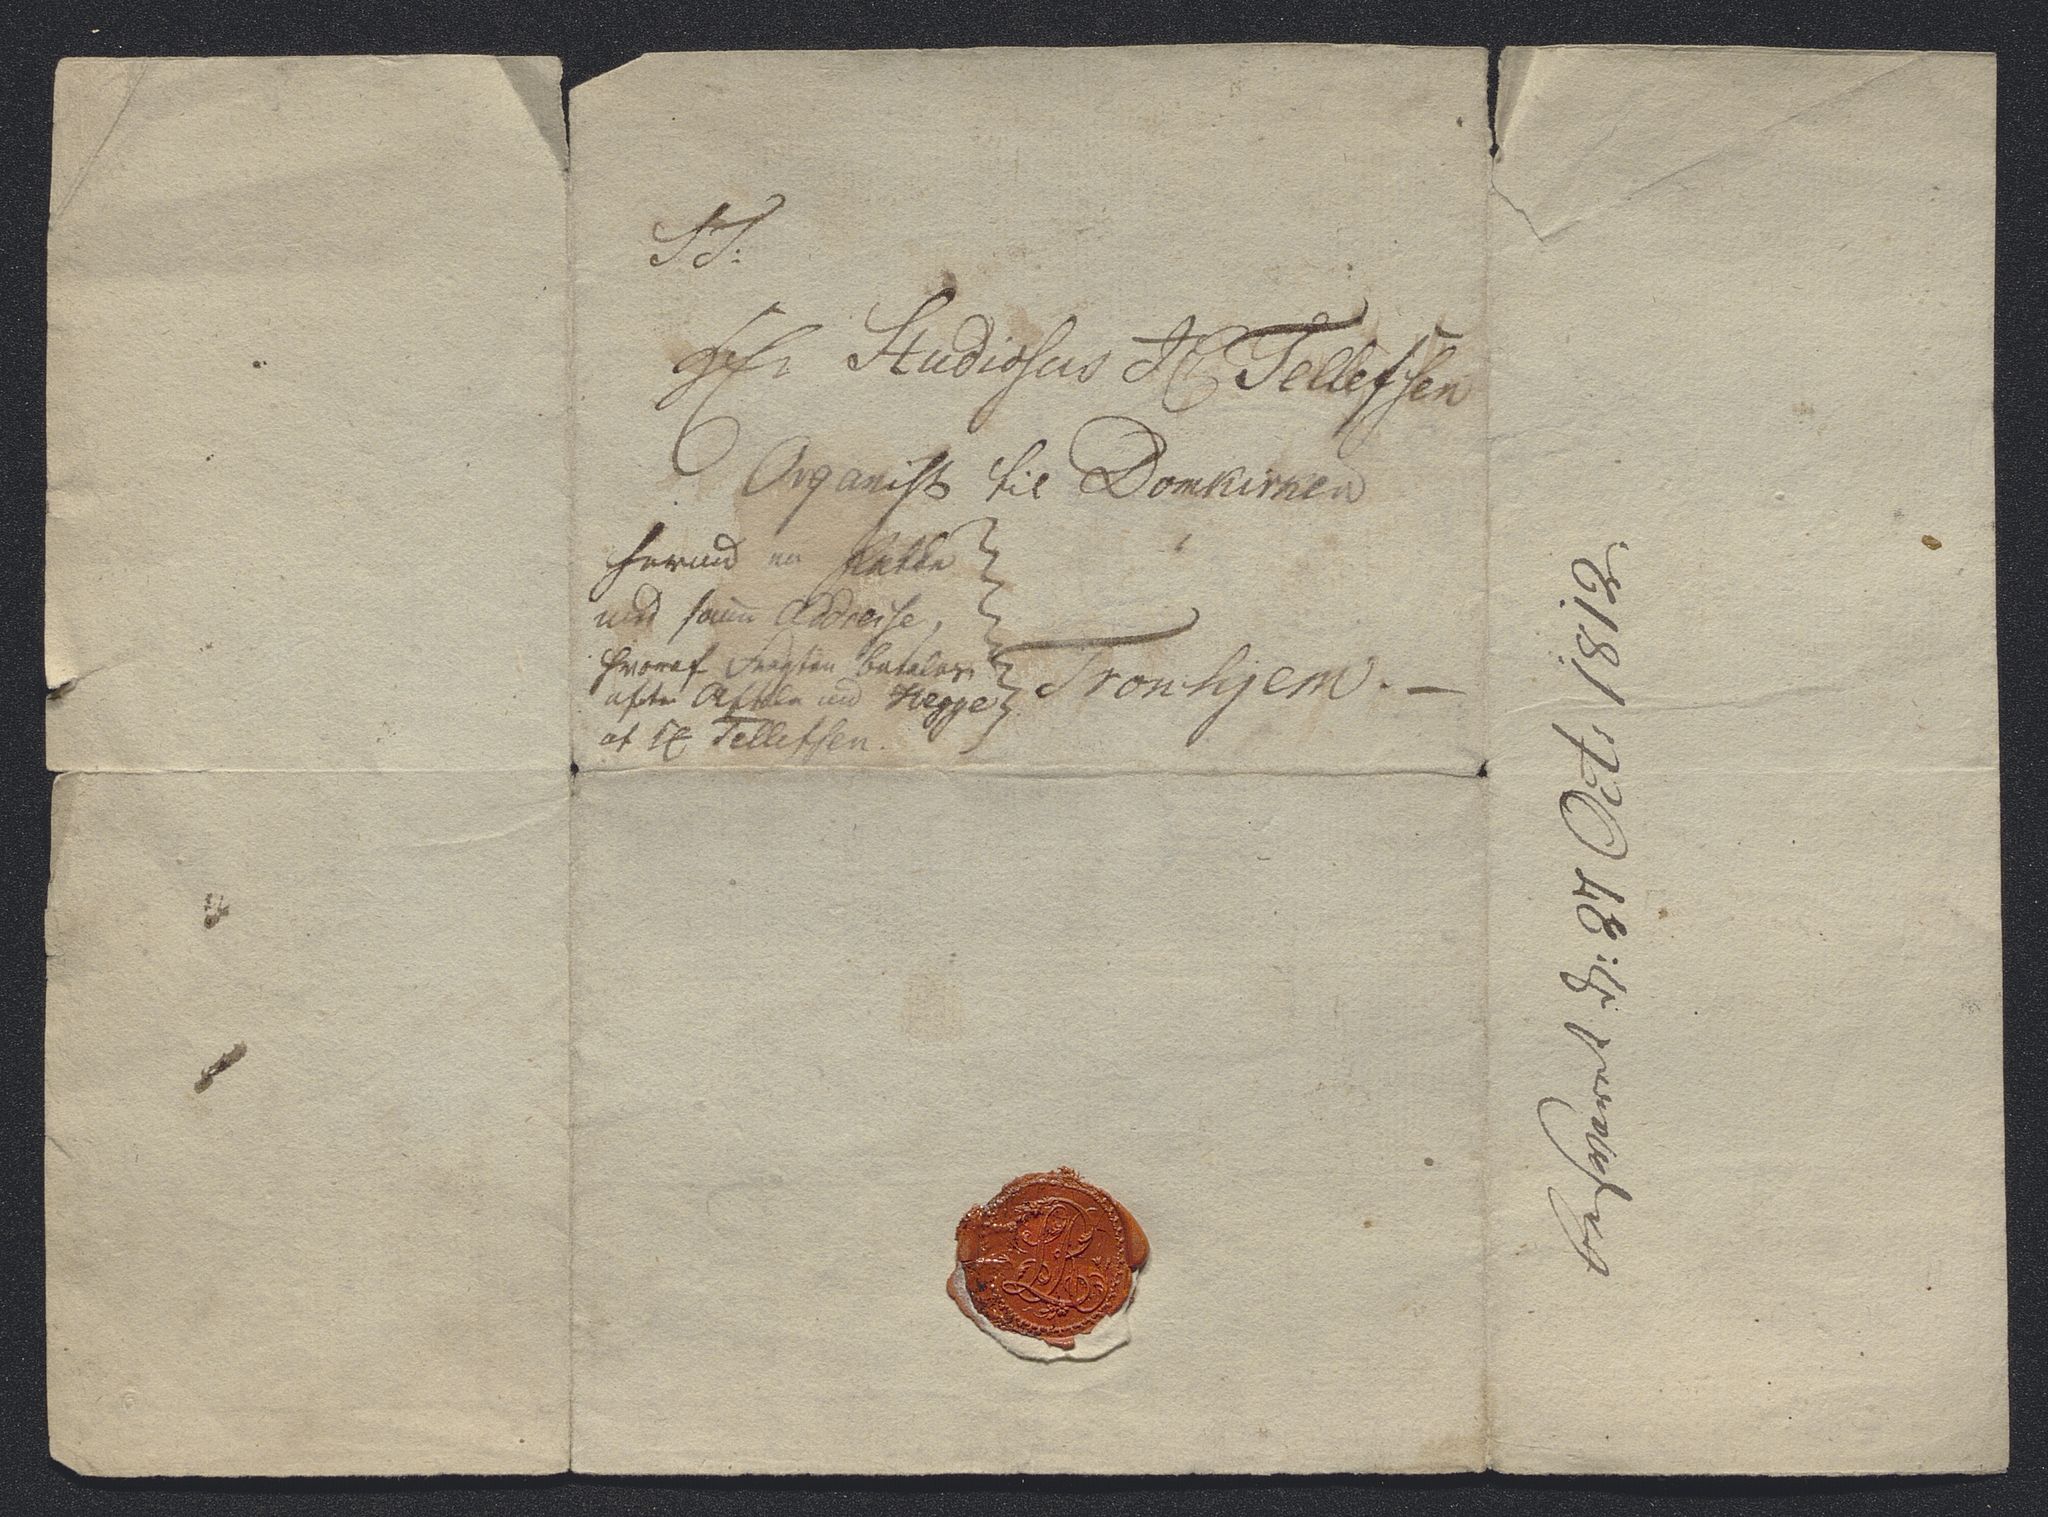 S. T.
Hr Studiosus JC Tellefsen
Organist til Domkirken
i
Tronhjem. —
herved en Kulde
med samme Addresse,
hvoraf Fragten betales
efter Aftale med Hegge
af JC Tellefsen.
besvaret d: 27 Oct: 1812
LR